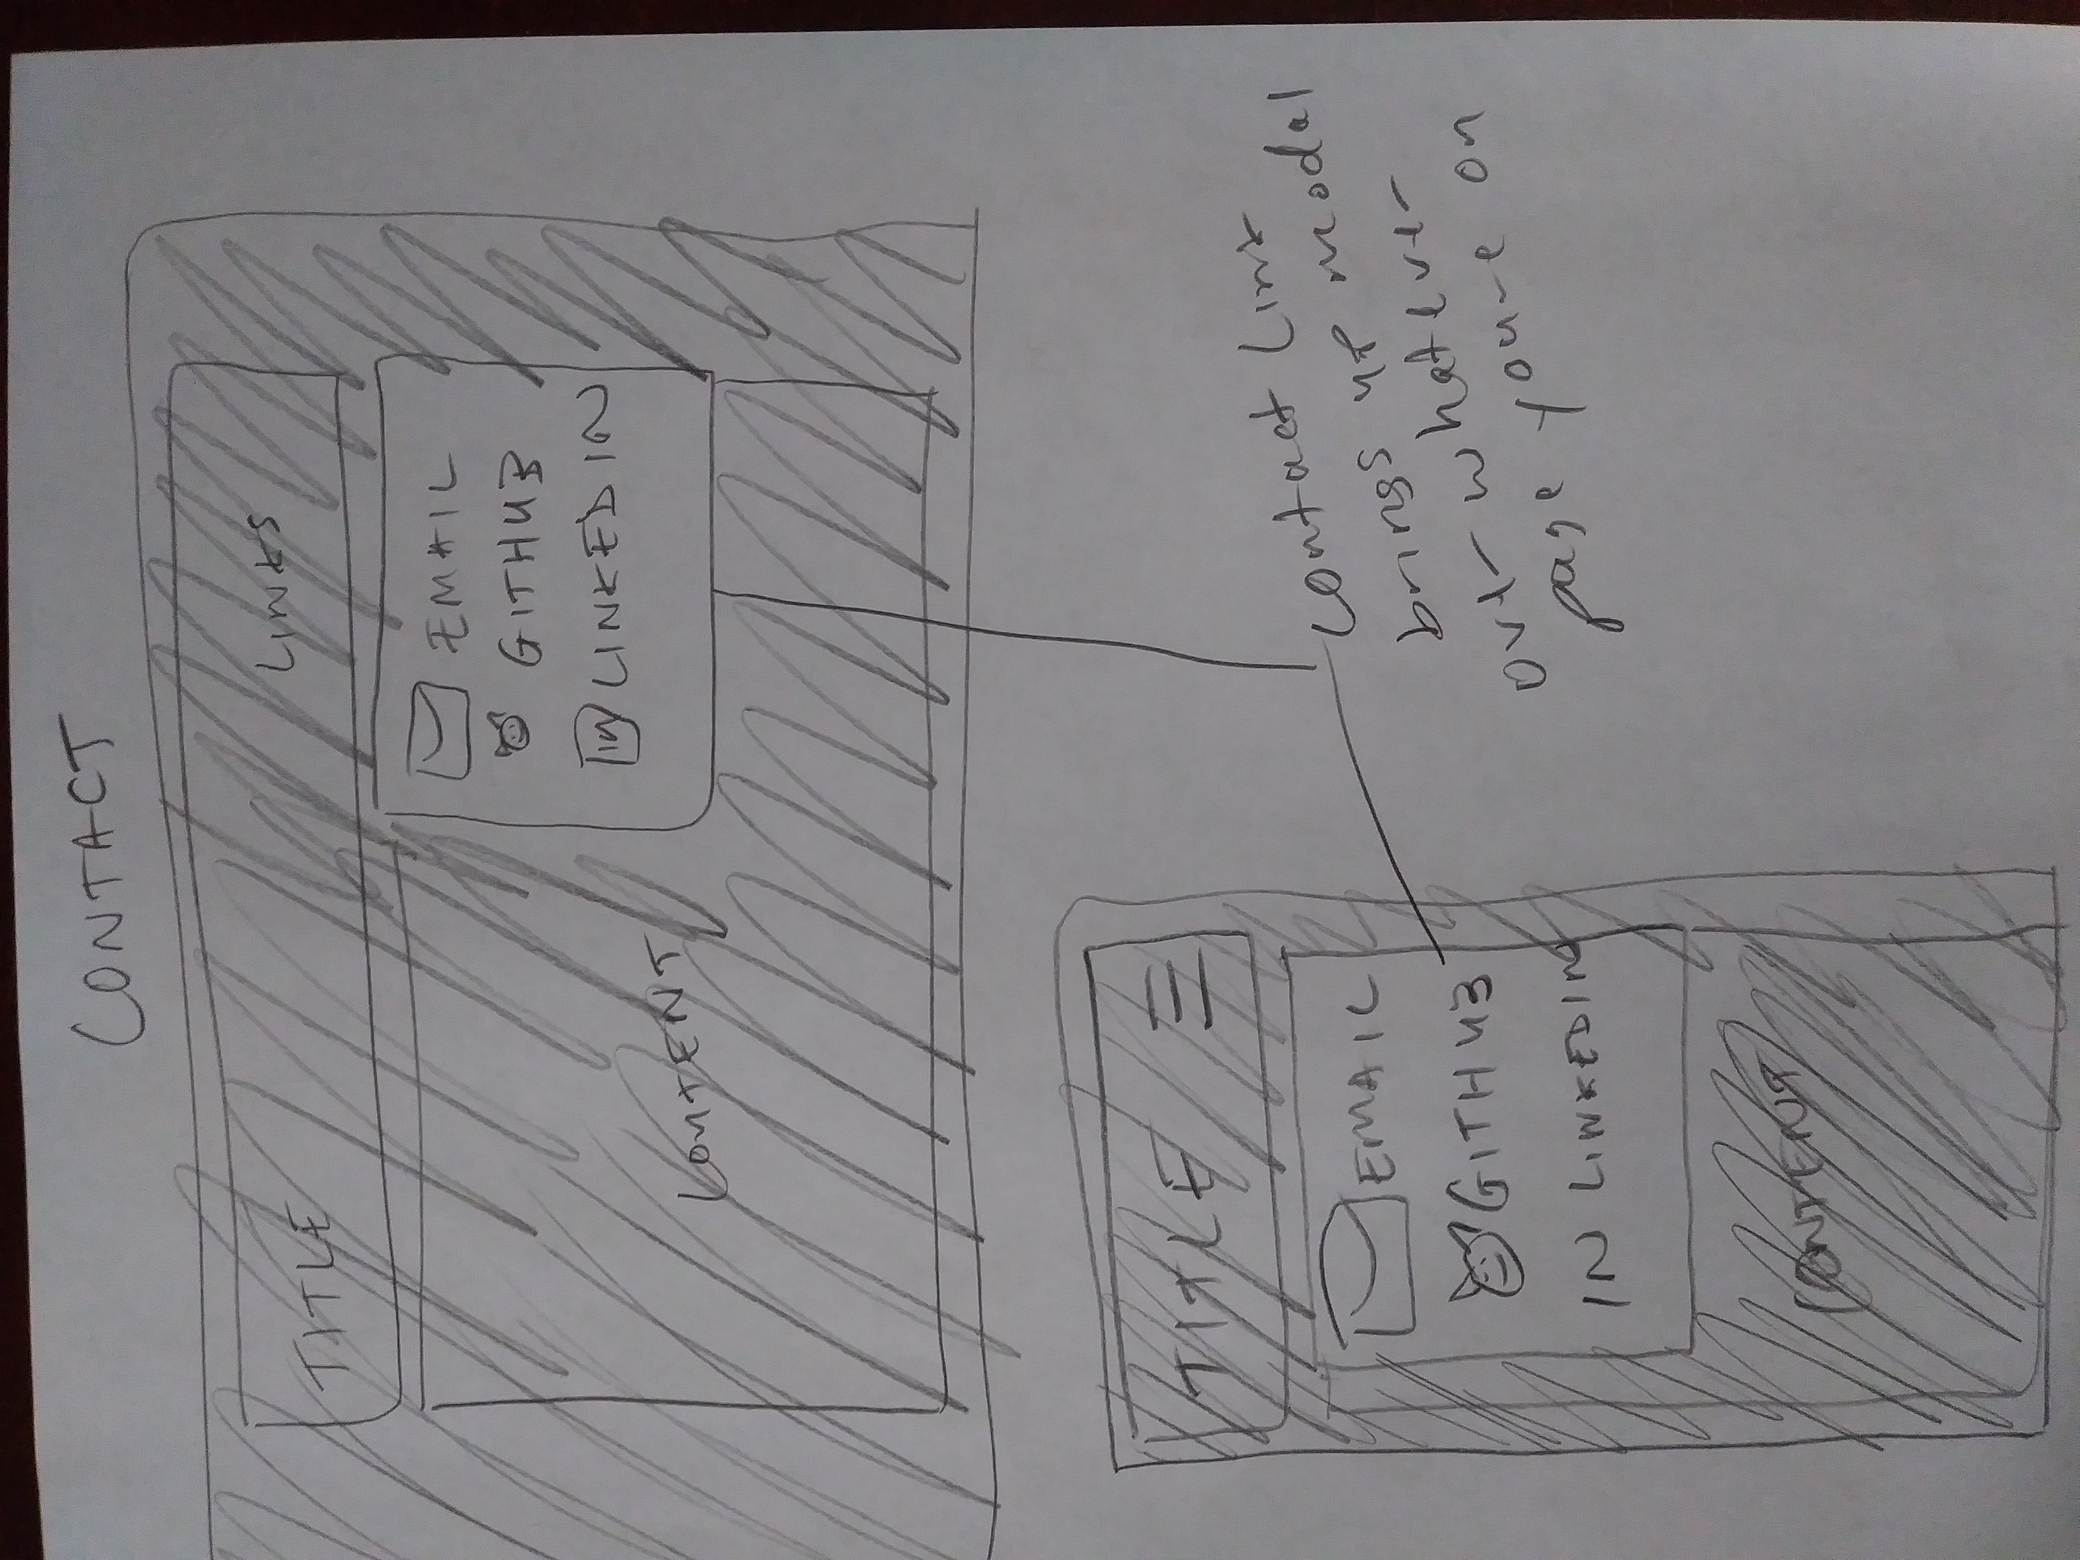 CONTACT
TITLE LINKS
EMAIL
GITHUB
in LINKEDIN
CONTENT
TITLE
EMAIL
GITHUB
IN LINKEDIN
CONTENT
Contact Link
brings up modal
over whatever
page you're on